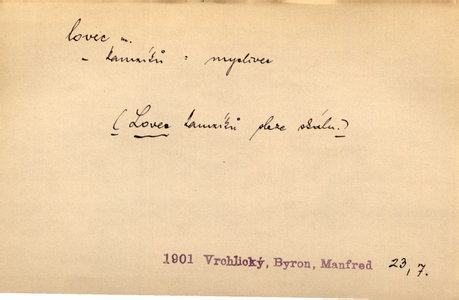 lovec m.
- kamzíků = myslivec
(Lovec kamzíků sleze skálu.)
1901 Vrchlický, Byron, Manfred 23, 7.